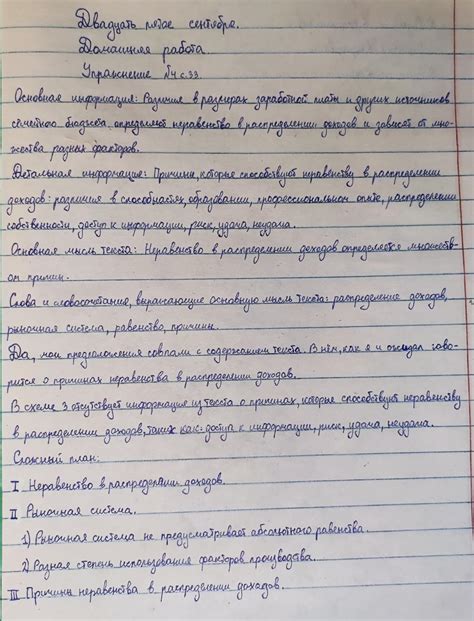 Двадцать пятое сентября.
Домашняя работа.
Упражнение №4 с.33
Основная информация: Различие в размерах заработной платы и других источников
семейного бюджета определяет неравенство в распределении доходов и зависят от мно-
жества разных факторов.
Детальная информация: Причины, которые способствуют неравенству в распределении
доходов: различия в способностях, образовании, профессиональном опыте, распределении
собственности, доступ к информации, риск, удача, неудача.
Основная мысль текста: Неравенство в распределении доходов определяется множеств-
ом причин.
Слова и словосочетания, выражающие основную мысль текста: распределение доходов,
рыночная система, равенство, причины.
Да, мои предположения совпали с содержанием текста. В нём, как я и ожидал гово-
рится о причинах неравенства в распределении доходов.
В схеме 3 отсутствует информация из текста о причинах, которые способствуют неравенству
в распределении доходов, таких как: доступ к информации, риск, удача, неудача.
Сложный план:
I Неравенство в распределении доходов.
II Рыночная система.
1) Рыночная система не предусматривает абсолютного равенства.
2) Разная степень использования факторов производства.
III Причины неравенства в распределении доходов.